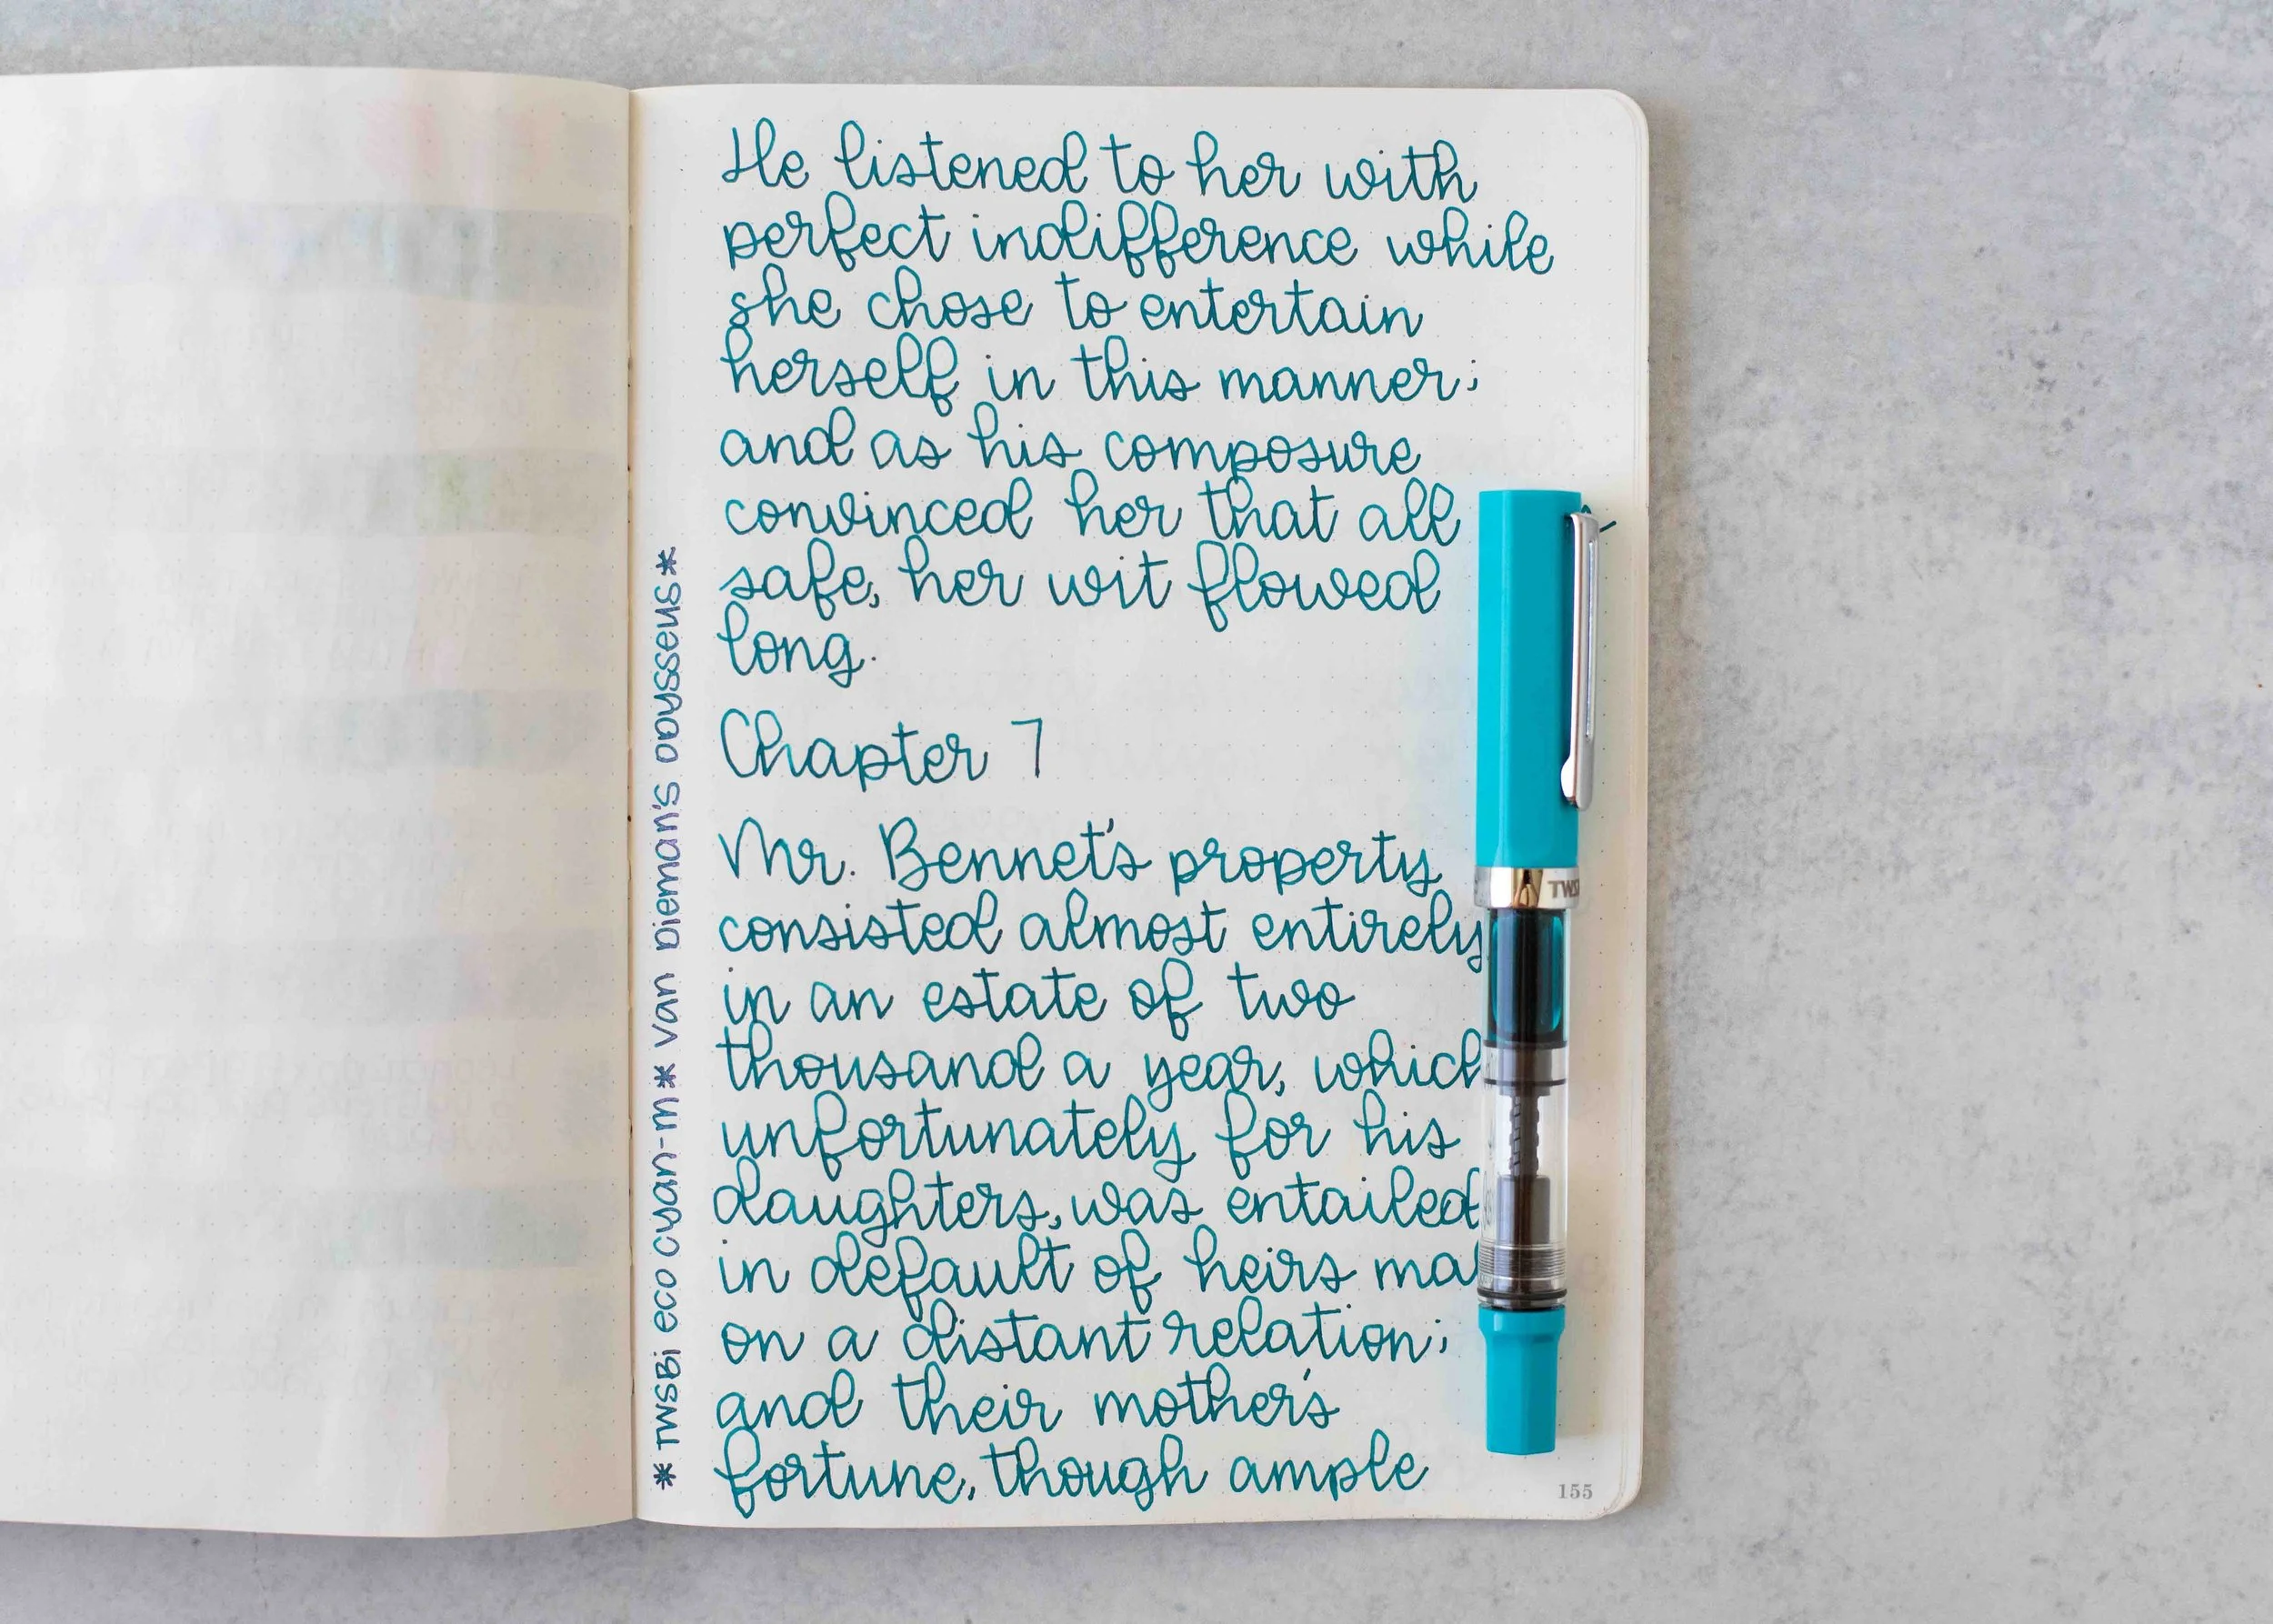 He listened to her with
perfect indifference while
she chose to entertain
herself in this manner;
and as his composure
convinced her that all
safe, her wit flowed
long.
Chapter 7
Mr. Bennet's property
consisted almost entirely
in an estate of two
thousand a year, which
unfortunately for his
daughters, was entailed
in default of heirs
on a distant relation;
and their mother's
fortune, though ample
*TWSBI eco cyan-m* van Dieman's Odysseus*
155